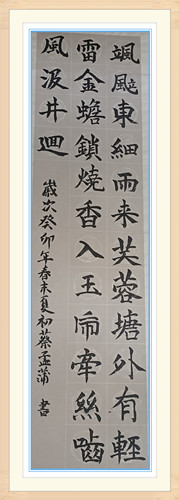 颯颯東細雨来芙蓉塘外有輕
雷金蟾鎖燒香入玉乕牽絲嚙
風汲井迴
歲次癸卯年春末夏初蔡孟蒲 書